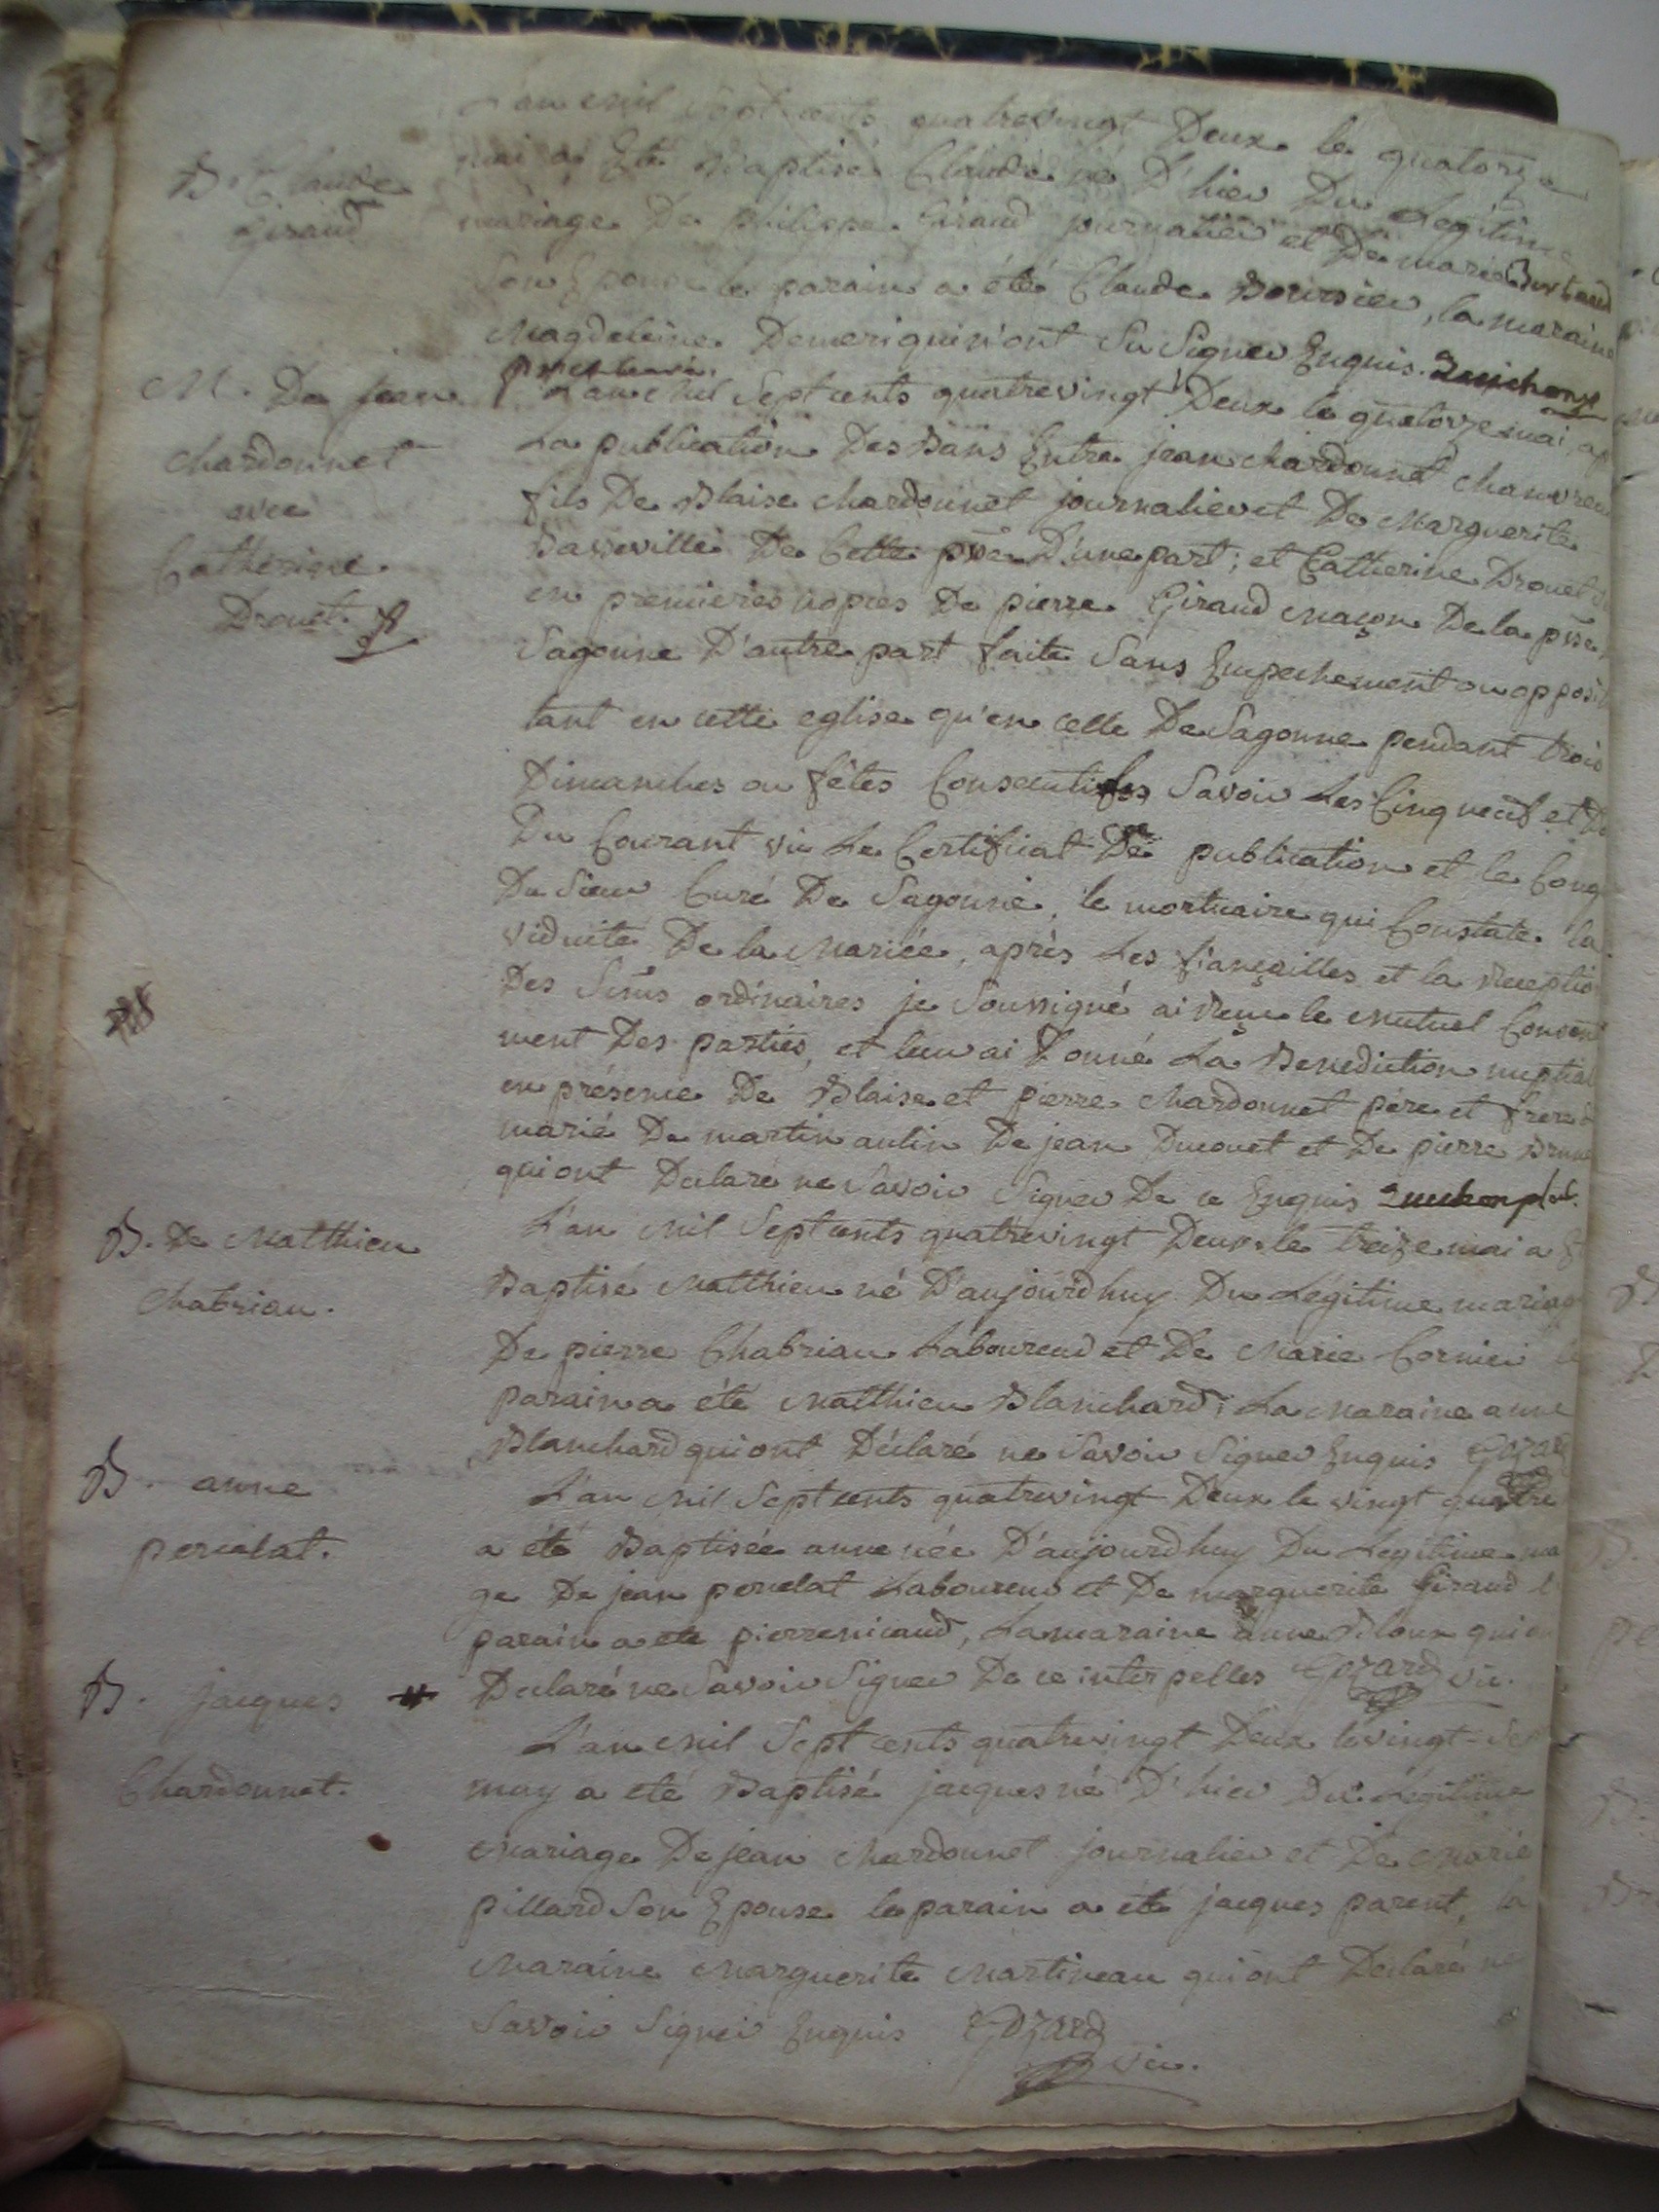 B. Claude
Giraud
L'an Mil Sept cents quatrevingt Deux le quatorze
mai a Eté Baptisé Claude né D'hier Du Legitime
mariage De philippe Giraud journalier et De marie
Son Epouse le parain a été Claude Boursier, la maraine
Magdeleine qui n'ont Su Signer Enquis.
M. De jean
Chardonnet
avec
Catherine
Drouet
L'an Mil Sept cents quatrevingt Deux le quatorze mai, ap
La publication Des Bans Entre jean Chardonnet Chanvreur
fils De Blaise Chardonnet journalier et De Marguerite
Basseville De Cette psse D'une part; et Catherine Drouet
en premieres nopces De pierre Giraud Maçon De la psse
Sagonne D'autre part faite Sans Empechement ou opposi
tant en cette eglise qu'en celle De Sagonne pendant trois
Dimanches ou fêtes Consecutifs, Savoir Les Cinq neuf et D
Du Courant vu Le Certificat De publication et le Cong
Du Sieur Curé De Sagonne, le mortuaire qui Constate la
viduité De la Mariée, après Les fiançailles et la Reception
Des Sms ordinaires je Soussigné ai Reçu le Mutuel Consent
ment Des parties, et leur ai Donné La Benediction nuptial
en présence De Blaise et pierre Chardonnet père et frere
marié De martin autin De jean Ducouet et De pierre
qui ont Declaré ne Savoir Signer De ce Enquis
B. De Matthieu
Chabrian.
L'an Mil Sept cents quatrevingt Deux le treize mai a
Baptisé Matthieu né D'aujourdhuy Du Légitime mariage
De pierre Chabrian Laboureur et De Marie Cornier
parain a été Matthieu Blanchard; La Maraine anne
Blanchard qui ont Déclaré ne Savoir Signer Enquis Gozard
B. anne
perielat.
L'an Mil Sept cents quatrevingt Deux le vingt quatre
a été Baptisée anne née D'aujourdhuy Du Legitime ma
ge De jean perielat Laboureur et De marguerite Giraud l
parain a ete pierre nicaud, La maraine anne Bloux qui
Declaré ne Savoir Signer De ce interpelles Gozard vic.
B. jacques
Chardonnet.
L'an Mil Sept cents quatrevingt Deux le vingt-Se
may a eté Baptisé jacques né D'hier Du Légitime
Mariage De jean Chardonnet journalier et De Marie
pillard Son Epouse le parain a été jacques parent, la
Maraine Marguerite Martineau qui ont Declaré ne
Savoir Signer Enquis Gozard
vic.